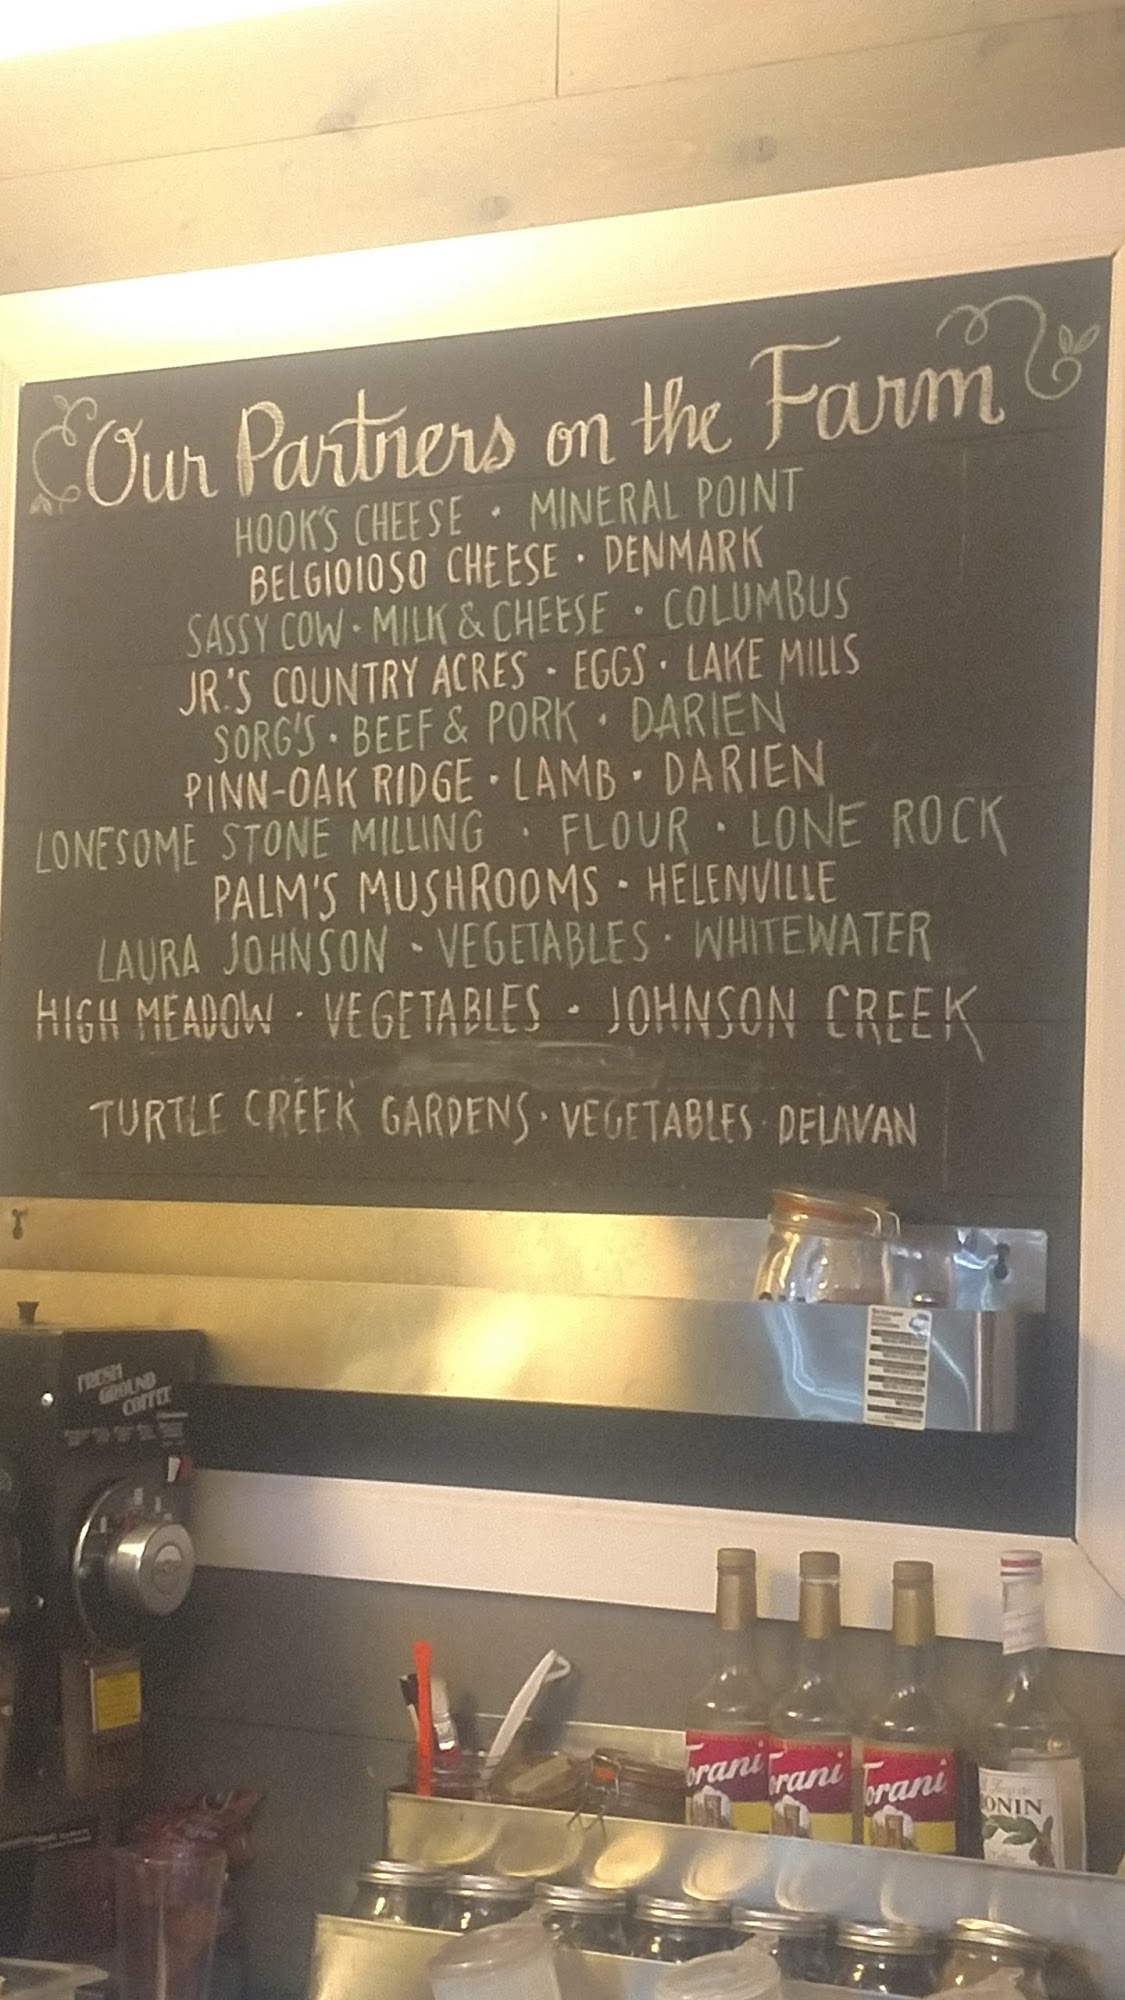 Our Partners on the Farm
HOOK'S CHEESE · MINERAL POINT
BELGIOIOSO CHEESE · DENMARK
SASSY COW · MILK & CHEESE · COLUMBUS
JR.'S COUNTRY ACRES · EGGS · LAKE MILLS
SORG'S · BEEF & PORK · DARIEN
PINN-OAK RIDGE · LAMB · DARIEN
LONESOME STONE MILLING · FLOUR · LONE ROCK
PALM'S MUSHROOMS · HELENVILLE
LAURA JOHNSON · VEGETABLES · WHITEWATER
HIGH MEADOW · VEGETABLES · JOHNSON CREEK
TURTLE CREEK GARDENS · VEGETABLES · DELAVAN
FRESH
GROUND
COFFEE
Torani
Torani
Torani
ONIN